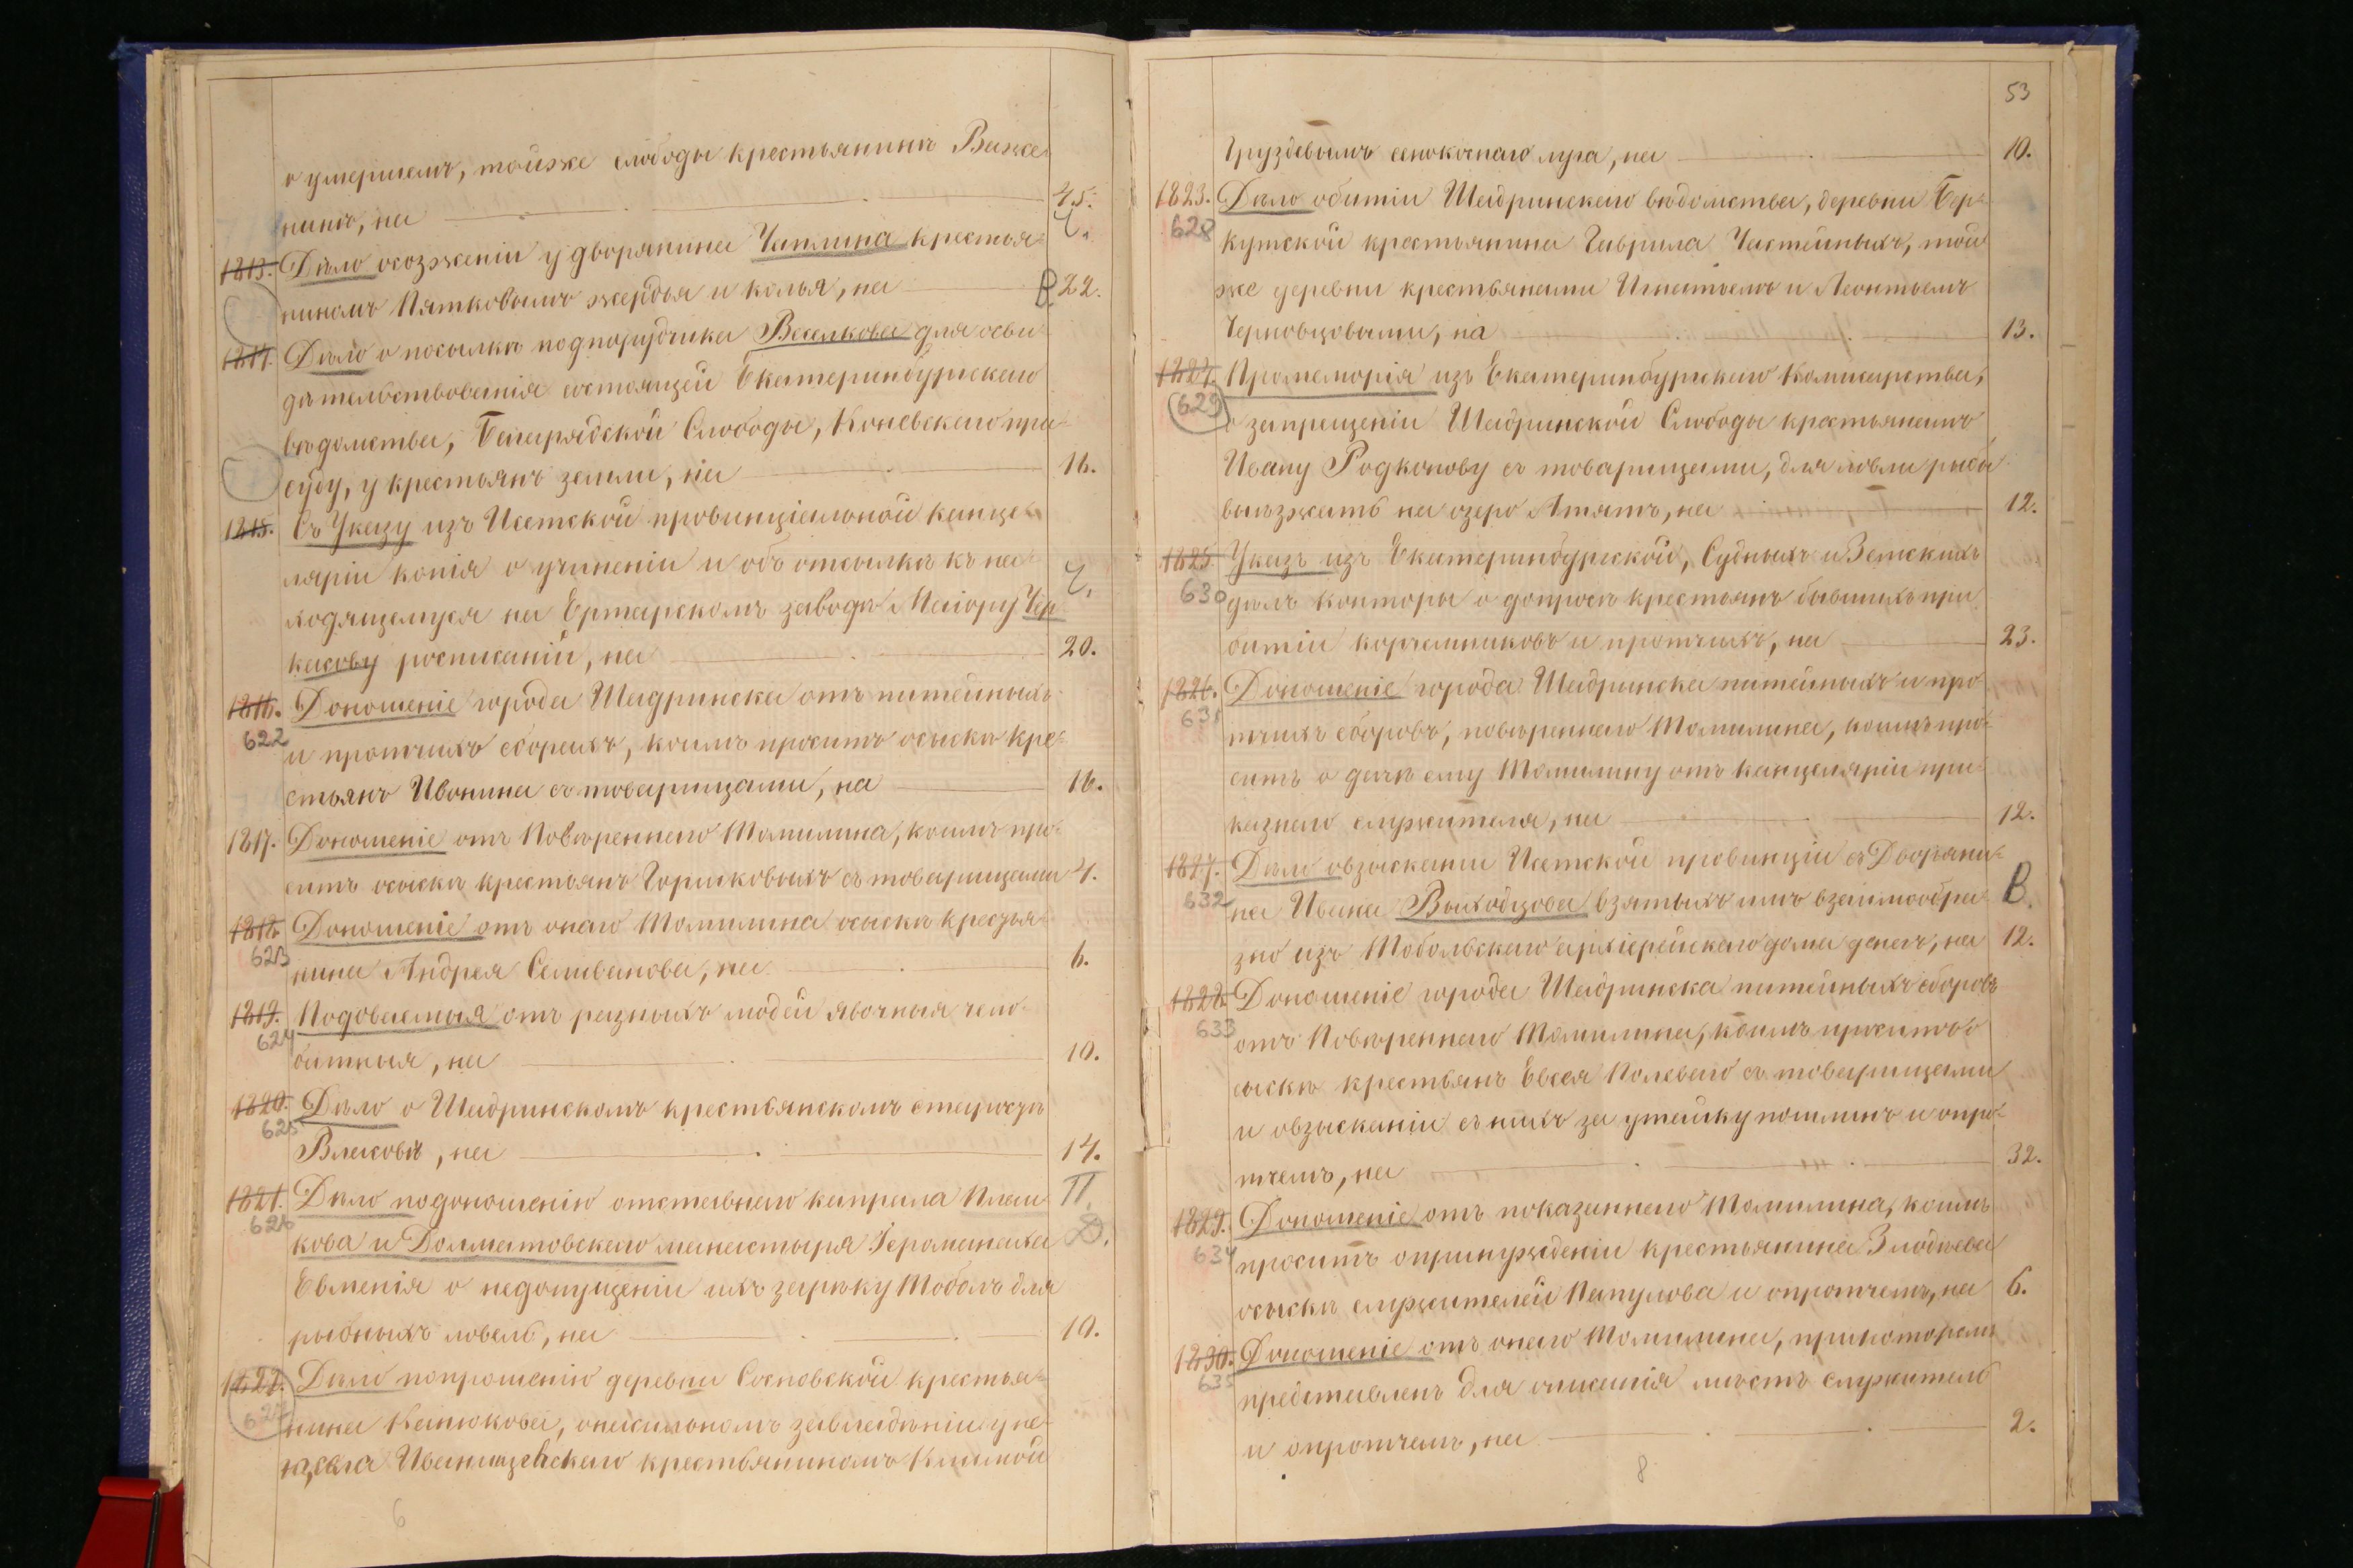 о умершемъ, тойже слободы крестьянинѣ Важе-
нинѣ, на 45.
Ч.
1813. Дѣло осозженіи удворянина Чаплина крестья-
ниномъ Пятковымъ жердья и колья, на В 22.
1814. Дѣло о посылкѣ подпорудчика Веселкова для осви-
дѣтельствованія состоящей Екатеринбургскаго
вѣдомства, Багарядской Слободы, Коневскаго при-
суду, у крестьянъ земли, на 16.
1815. Съ Указу изъ Исетской провинціальной канце-
ляріи копія о учиненіи и объ отсылкѣ къ на-
ходящемуся на Ертарскомъ заводѣ Маіору Чер Ч.
касову росписаніи, на 20.
1816. Доношеніе города Шадринска отъ питейныхъ
622 и протчихъ сборахъ, коимъ проситъ осыскѣ кре-
стьянъ Ивонина съ товарищами, на 16.
1817. Доношеніе отъ Повѣреннаго Томилина, коимъ про-
ситъ осыскѣ крестьянъ Горшковыхъ съ товарищами 4.
1818. Доношеніе отъ онаго Томилина осыскѣ крестья-
623 нина Андрея Селиванова, на 6.
1819. Подоваемыя отъ разныхъ людей явочныя чело-
624 битныя, на 10.
1820. Дѣло о Шадринскомъ крестьянскомъ старостѣ
625
Власовѣ, на 14.
1821. Дѣло подоношенію отставнаго капрала Плеш П.
626
кова и Долматовскаго манастыря Іероманаха Д.
Евменія о недопущеніи ихъ зарѣку Тоболъ для
рыбныхъ ловель, на 10.
1822. Дѣло попрошенію деревни Сосновской крестья-
627 нина Канюкова, онасильномъ завладѣніи у не-
го, села Иванищевскаго крестьяниномъ Климой
6
53
Груздевымъ сенокоснаго луга, на 10.
1823. Дѣло обитіи Шадринскаго вѣдомства, деревни Бер-
628 кутской крестьянина Гаврила Частейныхъ, той
же деревни крестьянами Игнатьемъ и Леонтьемъ
Черновцовыми, на 13.
1824. Промеморія изъ Екатеринбургскаго Комисарства,
629 о запрещеніи Шадринской Слободы крестьянамъ
Ивану Родионову съ товарищами, для ловли рыбы
выѣзжать на озеро Атятъ, на 12.
1825. Указъ изъ Екатеринбургской, Судныхъ и Земскихъ
630 дѣлъ Конторы о допросѣ крестьянъ бывшихъ при
битіи корчемниковъ и протчихъ, на 23.
1826. Доношеніе города Шадринска питейныхъ и про
631
тчихъ сборовъ, повѣреннаго Томилина, коимъ про-
ситъ о дачѣ ему Томилину отъ канцеляріи при-
казнаго служителя, на 12.
1827. Дѣло овзыскании Исетской провинціи съ Дворяни-
632 на Ивана Выходцова взятыхъ имъ взаимообра- В.
зно изъ Тобольскаго архіерейскаго дома денегъ, на 12.
1828. Доношеніе города Шадринска питейныхъ сборовъ
633 отъ Повѣреннаго Томилина, коимъ проситъ о
сыскѣ крестьянъ Евсея Полеваго съ товарищами
и овзысканіи съ нихъ за утайку пошлинъ и опро-
тчемъ, на 32.
1829. Доношеніе отъ показаннаго Томилина, коимъ
634 проситъ опринужденіи крестьянина Злодѣева
осыскѣ служителей Папулова и опротчемъ, на 6.
1830. Доношеніе отъ онаго Томилина, прикоторомъ
635
представленъ для описанія мѣстъ служитель
и опротчемъ, на 2.
8